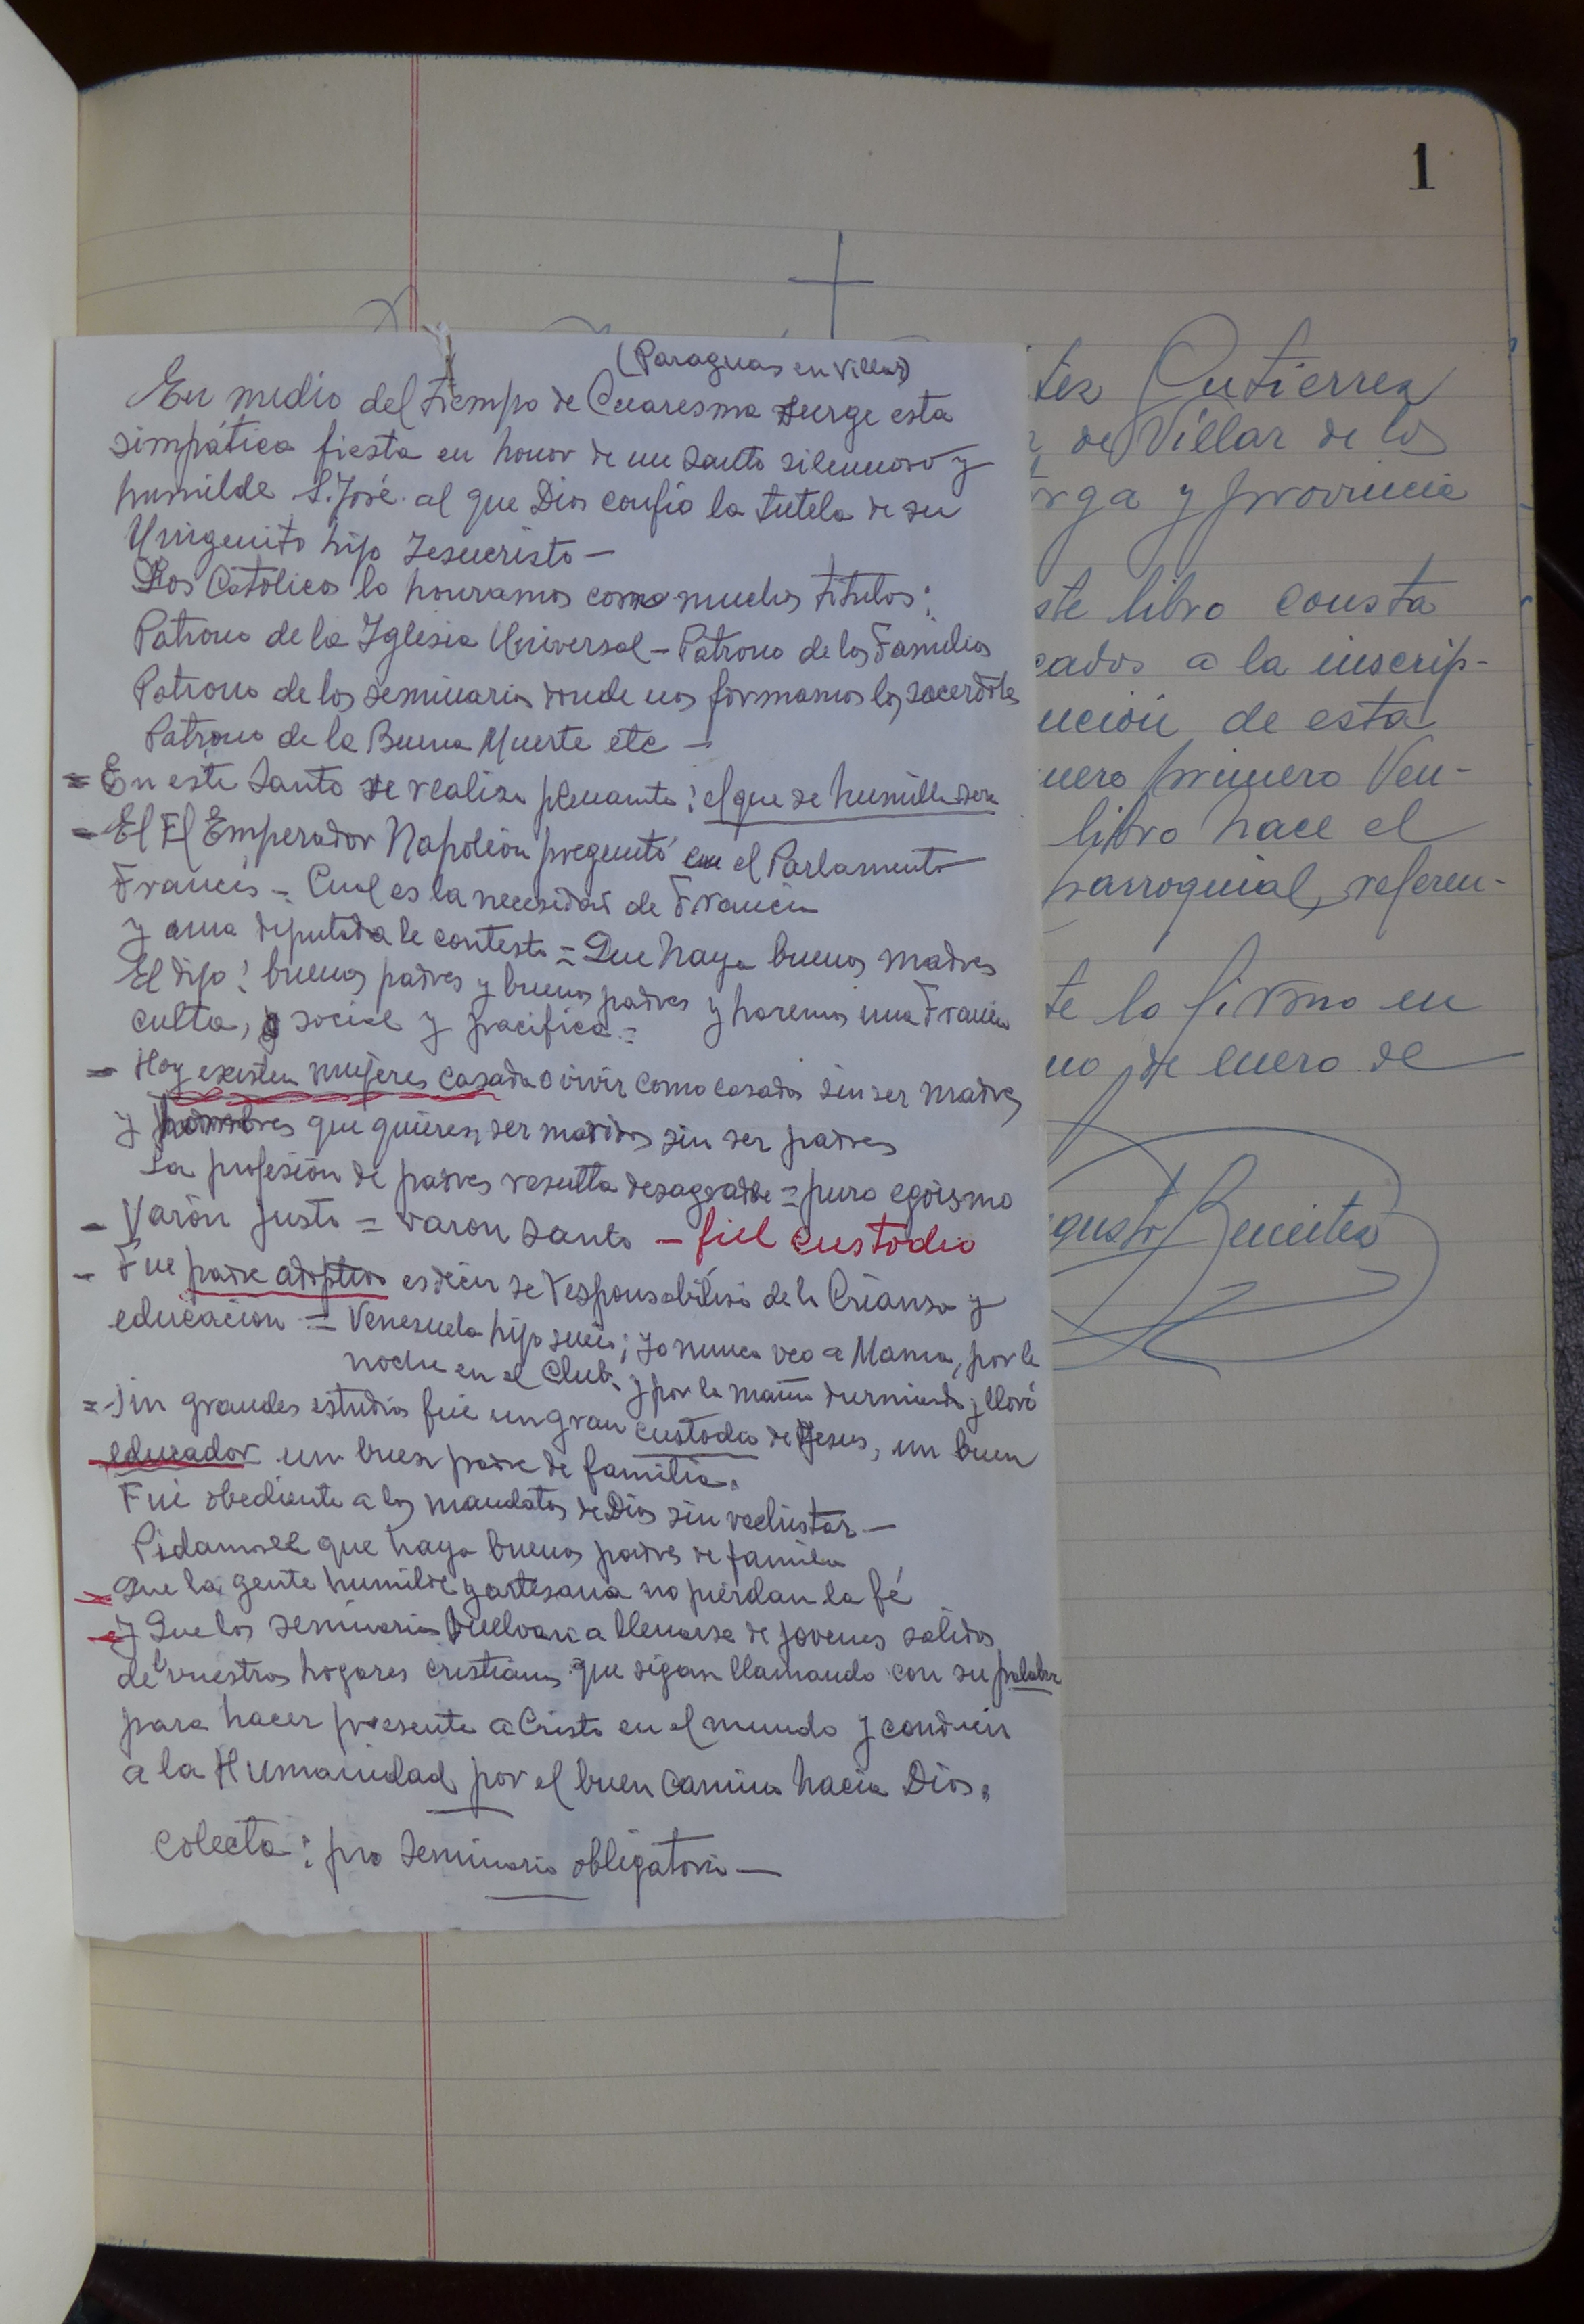 1
(Paraguas en Villar)
En medio del tiempo de Cuaresma surge esta
simpática fiesta en honor de un Santo silencioso y
humilde S. José al que Dios confió la tutela de su
Unigenito hijo Jesucristo —
Los Católicos lo honramos como muchos titulos:
Patrono de la Iglesia Universal — Patrono de las Familias
Patrono de los seminarios donde nos formamos los sacerdotes
Patrono de la Buena Muerte etc —
= En este Santo se realiza plenamente: el que se humilla sera
- El El Emperador Napoleón preguntó en el Parlamento
Francés = Cual es la necesidad de Francia
y una diputada le contesto = Que haya buenas madres
El dijo: buenos padres y buenos padres y haremos una Francia
culta, y social y pacifica =
- Hoy existen mujeres casadas o vivir como casadas sin ser madres
y hombres que quieren ser maridos sin ser padres
La profesión de padres resulta desagradable = puro egoismo
- Varón justo = varon santo — fiel custodio
- Fue padre adoptivo es decir se responsabilizó de la Crianza y
educacion = Venezuela hijo ; yo nunca veo a Mama, por la
noche en el Club y por la mañana durmiendo y lloró
= Sin grandes estudios fue un gran custodio de Jesus, un buen
educador un buen padre de familia.
Fué obediente a los mandatos de Dios sin rechistar —
Pidamosle que haya buenos padres de familia
- Que la gente humilde y artesana no pierdan la fé
- y Que los seminarios vuelvan a llenarse de jovenes salidos
de vuestros hogares cristianos que sigan llamando con su palabra
para hacer presente a Cristo en el mundo y conducir
a la Humanidad por el buen camino hacia Dios.
Colecta: pro Seminario obligatoria —
tez Gutierrez
de Villar de los
orga y provincia
ste libro consta
cados a la inscrip-
ución de esta
nero primero Ven-
libro hace el
parroquial, referen-
te lo firmo en
no de enero de
gusto Benéitez